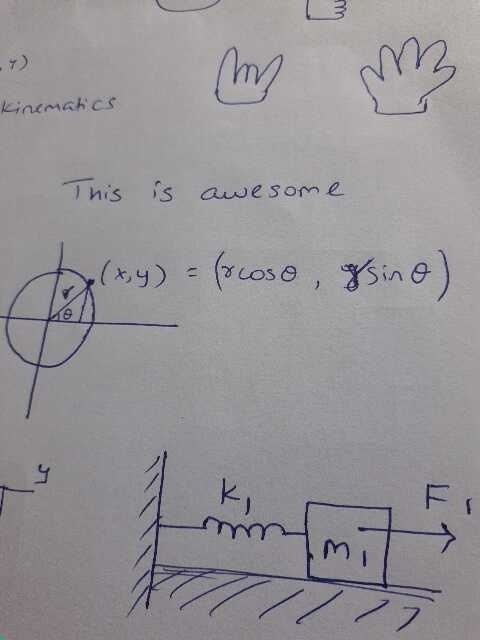 , y)
kinematics
This is awesome
(x,y) = (r cos θ , r sin θ)
r
θ
y
K₁
F₁
m₁